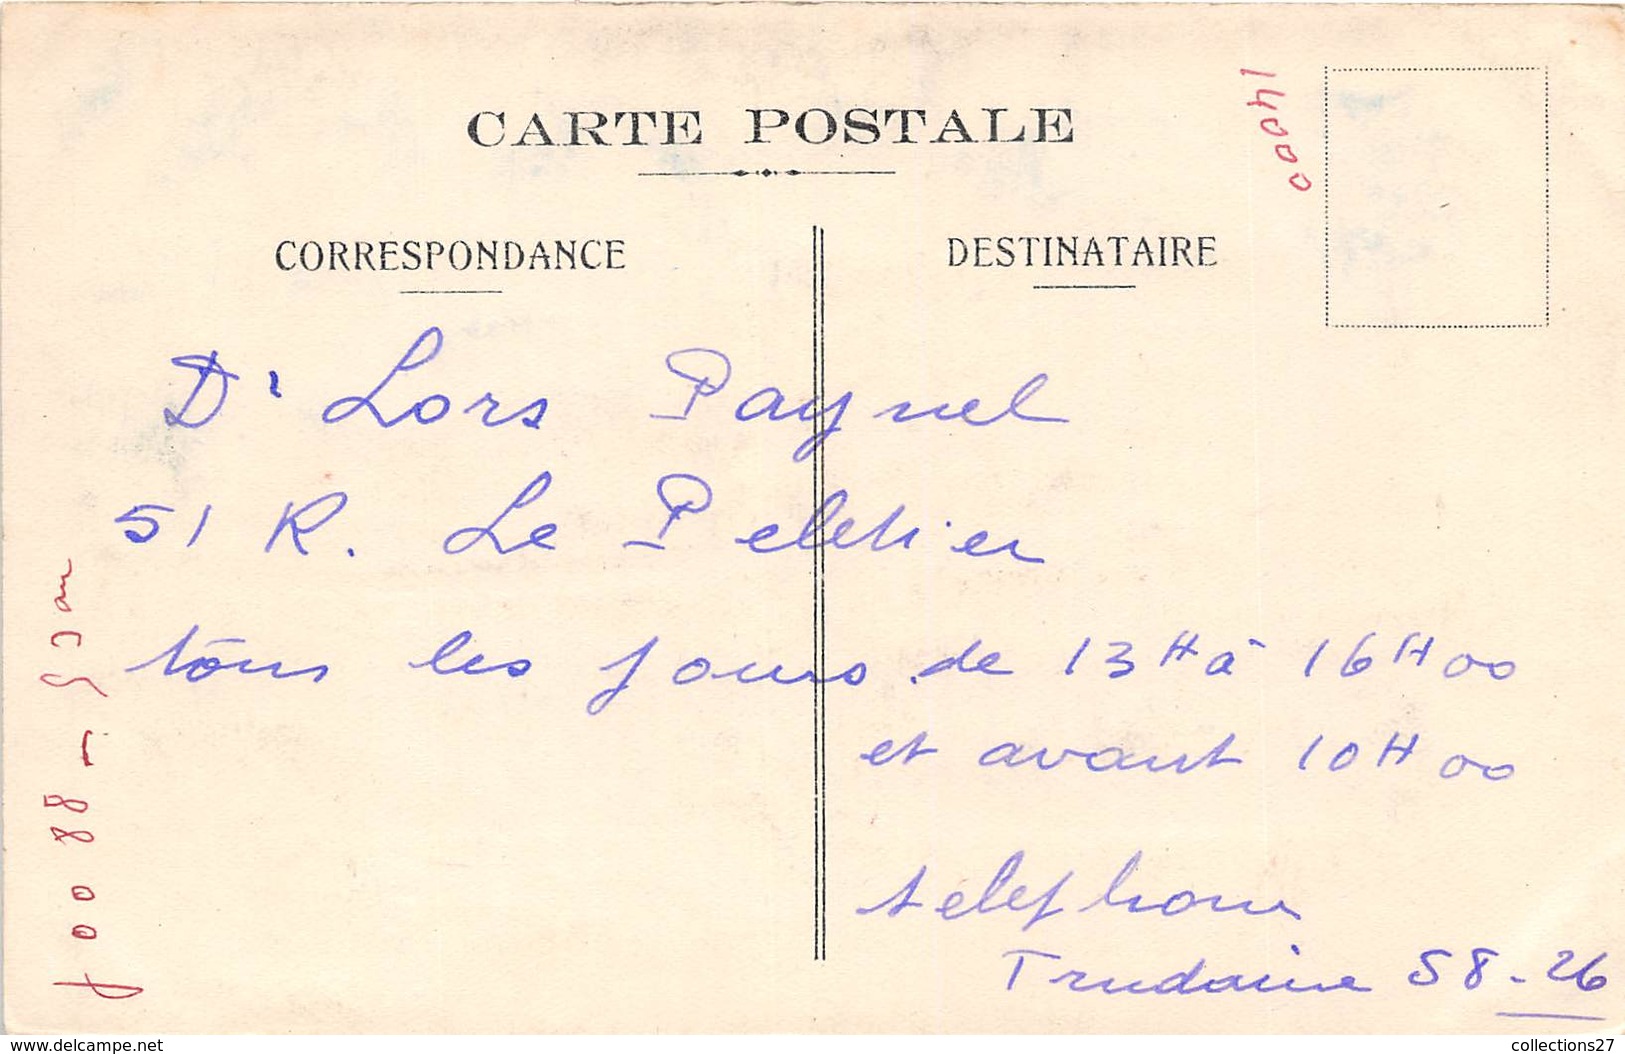 CARTE POSTALE
14000
CORRESPONDANCE
DESTINATAIRE
Dr Lors Paynel
51 R. Le Peletier
tous les jours de 13H à 16H00
et avant 10H00
telephone
Trudaine 58-26
www.delcampe.net
collections27